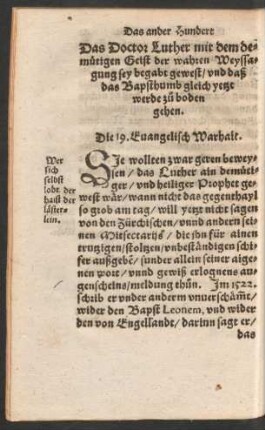 Das ander Hundert
Das Doctor Luther mit dem de-
mütigen Geist der wahren Weyssa-
gung sey begabt gewest/ vnd daß
das Bapsthumb gleich yetzt
werde zů boden
gehen.
Die 19. Euangelisch Warhait.
Wer
sich
selbst
lobt der
haist der
läster-
lein.
SJe wollten zwar geren bewey-
sen/ das Luther ain demüti-
ger/ vnd heiliger Prophet ge-
west wär/ wann nicht das gegenthayl
so grob am tag/ will yetzt nicht sagen
von den Zürchischen/ vnnd andern sei-
nen Mitsectariis/ die jhn für ainen
trutzigen/ stoltzen/ vnbeständigen schi-
fer außgebē/ sunder allein seiner aige-
nen wort/ vnnd gewiß erlognens au-
genscheins/ meldung thůn. Jm 1522.
schrib er vnder anderm vnuerschämt/
wider den Bapst Leonem, vnd wider
den von Engellandt/ darinn sagt er/
das